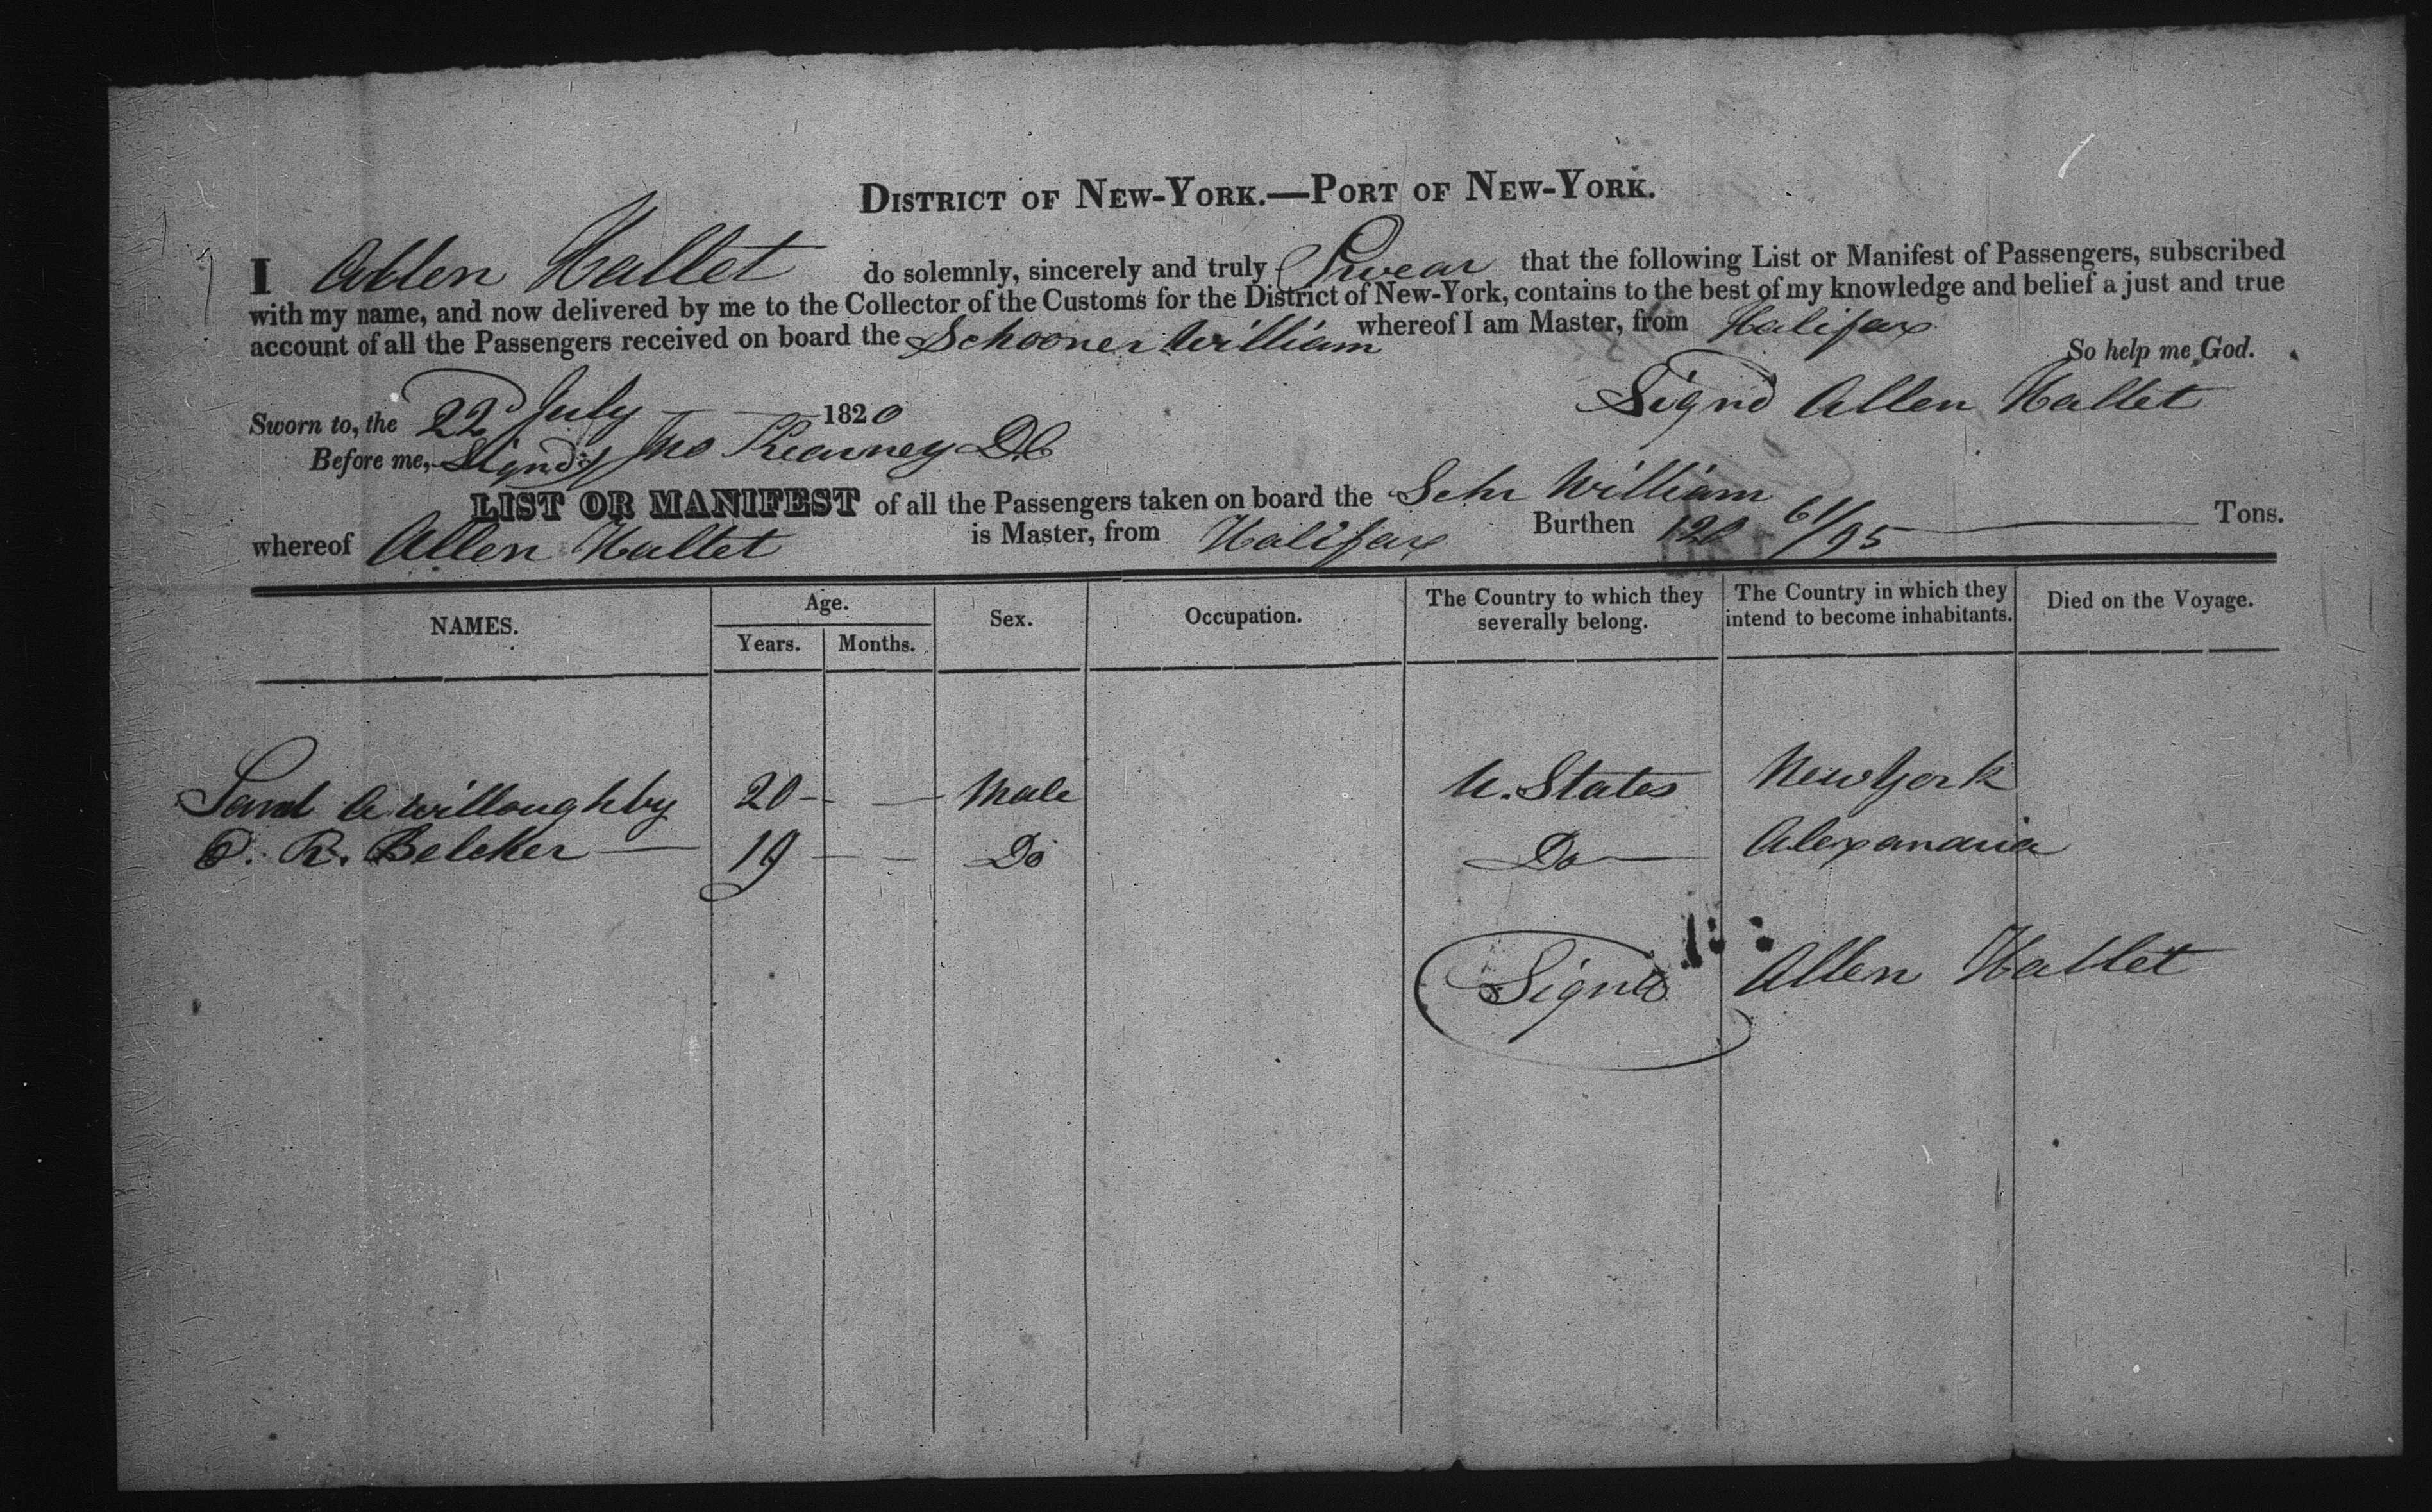 DISTRICT OF NEW-YORK.—PORT OF NEW-YORK.
I Allen Hallet do solemnly, sincerely and truly Swear that the following List or Manifest of Passengers, subscribed
with my name, and now delivered by me to the Collector of the Customs for the District of New-York, contains to the best of my knowledge and belief a just and true
account of all the Passengers received on board the Schooner William whereof I am Master, from Halifax
So help me God.
Sworn to, the 22d July 1820
Signd Allen Hallet
Before me, Signd Jno Kearney D.C
LIST OR MANIFEST of all the Passengers taken on board the Schr William
whereof Allen Hallet is Master, from Halifax Burthen 120 61/95 Tons.
NAMES. Age. Sex. Occupation. The Country to which they severally belong. The Country in which they intend to become inhabitants. Died on the Voyage.
Years. Months.
Saml A Willoughby 20 — — Male U. States New York
R. Belcher — 19 — — Do Do — Alexandria
Signd Allen Hallet